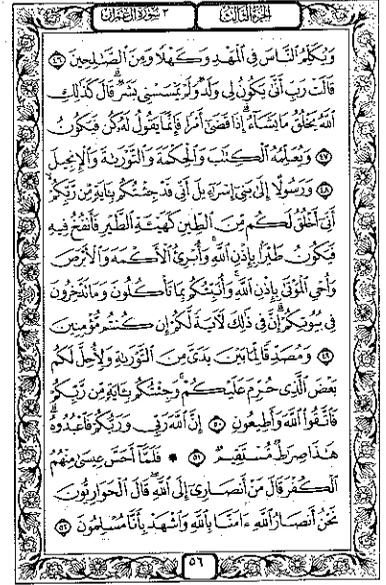 الجزء الثالث ٣ سورة آل عمران
وَيُكَلِّمُ النَّاسَ فِي الْمَهْدِ وَكَهْلًا وَمِنَ الصَّٰلِحِينَ ٤٦
قَالَتْ رَبِّ أَنَّىٰ يَكُونُ لِي وَلَدٌ وَلَمْ يَمْسَسْنِي بَشَرٌ قَالَ كَذَٰلِكِ
اللَّهُ يَخْلُقُ مَا يَشَاءُ إِذَا قَضَىٰ أَمْرًا فَإِنَّمَا يَقُولُ لَهُ كُن فَيَكُونُ
٤٧ وَيُعَلِّمُهُ الْكِتَٰبَ وَالْحِكْمَةَ وَالتَّوْرَىٰةَ وَالْإِنجِيلَ
٤٨ وَرَسُولًا إِلَىٰ بَنِي إِسْرَٰءِيلَ أَنِّي قَدْ جِئْتُكُم بِـَٔايَةٍ مِّن رَّبِّكُمْ
أَنِّي أَخْلُقُ لَكُم مِّنَ الطِّينِ كَهَيْـَٔةِ الطَّيْرِ فَأَنفُخُ فِيهِ
فَيَكُونُ طَيْرًا بِإِذْنِ اللَّهِ وَأُبْرِئُ الْأَكْمَهَ وَالْأَبْرَصَ
وَأُحْيِ الْمَوْتَىٰ بِإِذْنِ اللَّهِ وَأُنَبِّئُكُم بِمَا تَأْكُلُونَ وَمَا تَدَّخِرُونَ
فِي بُيُوتِكُمْ إِنَّ فِي ذَٰلِكَ لَآيَةً لَّكُمْ إِن كُنتُم مُّؤْمِنِينَ
٤٩ وَمُصَدِّقًا لِّمَا بَيْنَ يَدَيَّ مِنَ التَّوْرَىٰةِ وَلِأُحِلَّ لَكُم
بَعْضَ الَّذِي حُرِّمَ عَلَيْكُمْ وَجِئْتُكُم بِـَٔايَةٍ مِّن رَّبِّكُمْ
فَاتَّقُوا اللَّهَ وَأَطِيعُونِ ٥٠ إِنَّ اللَّهَ رَبِّي وَرَبُّكُمْ فَاعْبُدُوهُ
هَٰذَا صِرَٰطٌ مُّسْتَقِيمٌ ٥١ فَلَمَّا أَحَسَّ عِيسَىٰ مِنْهُمُ
الْكُفْرَ قَالَ مَنْ أَنصَارِي إِلَى اللَّهِ قَالَ الْحَوَارِيُّونَ
نَحْنُ أَنصَارُ اللَّهِ ءَامَنَّا بِاللَّهِ وَاشْهَدْ بِأَنَّا مُسْلِمُونَ ٥٢
٥٦